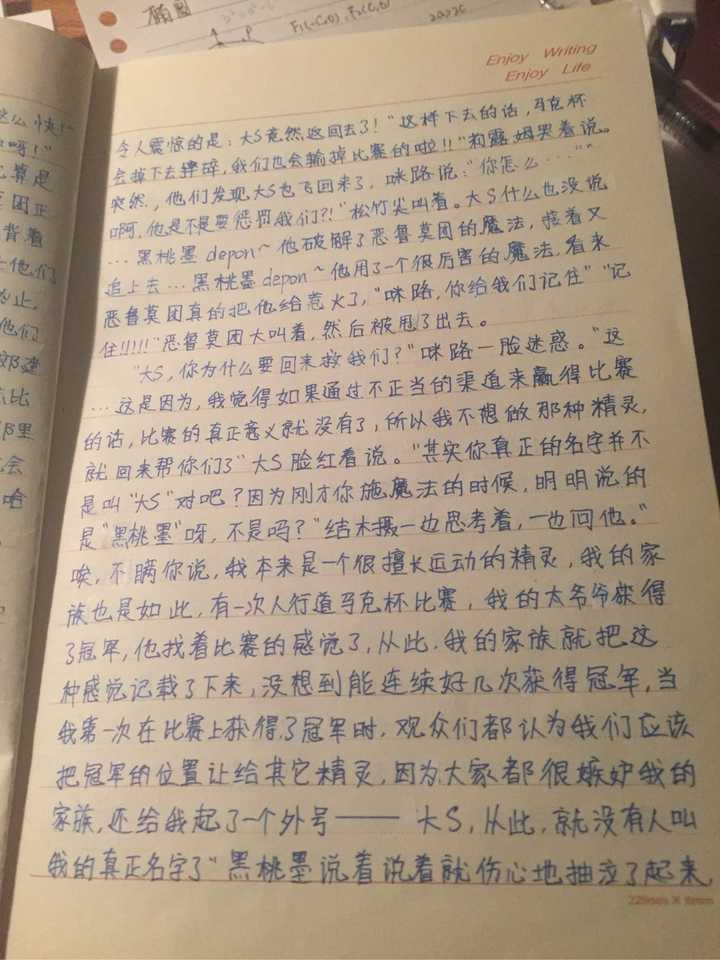 椭圆
F₁(-C,0), F₂(C,0)
Enjoy Writing
Enjoy Life
这么快!"
吗!"
算是
因正
背着
他们
为止,
他们
比
那里
会
哈
令人震惊的是:大S竟然返回去了!"这样下去的话,马克杯
会掉下去摔碎,我们也会输掉比赛的啦!!"莉露姆哭着说。
突然,他们发现大S也飞回来了,咪路说:"你怎么……""
啊,他是不是要惩罚我们?!"松竹尖叫着。大S什么也没说
…黑桃墨depon~他破解了恶鲁莫团的魔法,接着又
追上去…黑桃墨depon~他用了一个很厉害的魔法,看来
恶鲁莫团真的把他给惹火了,"咪路,你给我们记住""记
住!!!!!"恶鲁莫团大叫着,然后被甩了出去。
"大S,你为什么要回来救我们?"咪路一脸迷惑。"这
…这是因为,我觉得如果通过不正当的渠道来赢得比赛
的话,比赛的真正意义就没有了,所以我不想做那种精灵,
就回来帮你们了"大S脸红着说。"其实你真正的名字并不
是叫"大S"对吧?因为刚才你施魔法的时候,明明说的
是"黑桃墨"呀,不是吗?"结木摄一边思考着,一边问他。"
唉,不瞒你说,我本来是一个很擅长运动的精灵,我的家
族也是如此,有一次人行道马克杯比赛,我的太爷爷获得
了冠军,他找着比赛的感觉了,从此,我的家族就把这
种感觉记载了下来,没想到能连续好几次获得冠军,当
我第一次在比赛上获得了冠军时,观众们都认为我们应该
把冠军的位置让给其它精灵,因为大家都很嫉妒我的
家族,还给我起了一个外号——大S,从此,就没有人叫
我的真正名字了"黑桃墨说着说着就伤心地抽泣了起来